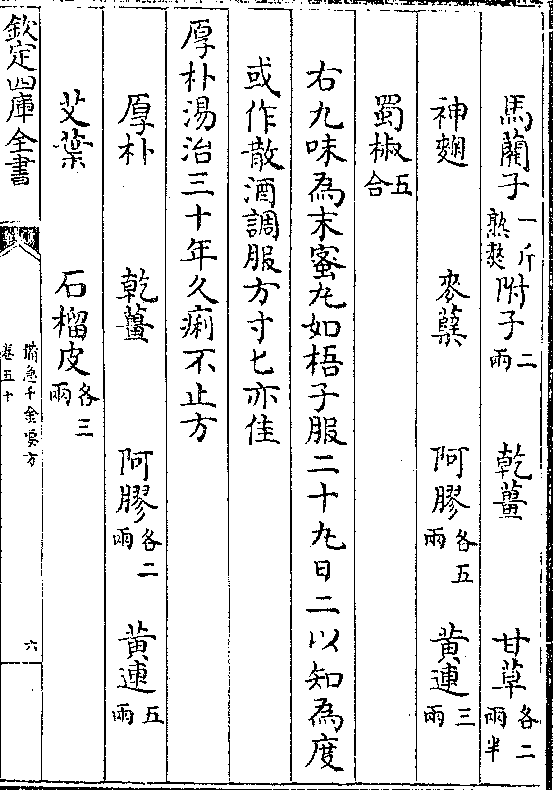 馬藺子一斤熟熬附子二兩 乾薑 甘草各二兩半
神麯 麥蘗 阿膠各五兩 黄連三兩
蜀椒五合
右九味為末蜜丸如梧子服二十丸日二以知為度
或作散酒調服方寸匕亦佳
厚朴湯治三十年久痢不止方
厚朴 乾薑 阿膠各二兩 黄連五兩
艾葉 石榴皮各三兩
欽定四庫全書 備急千金要方 卷五十 六